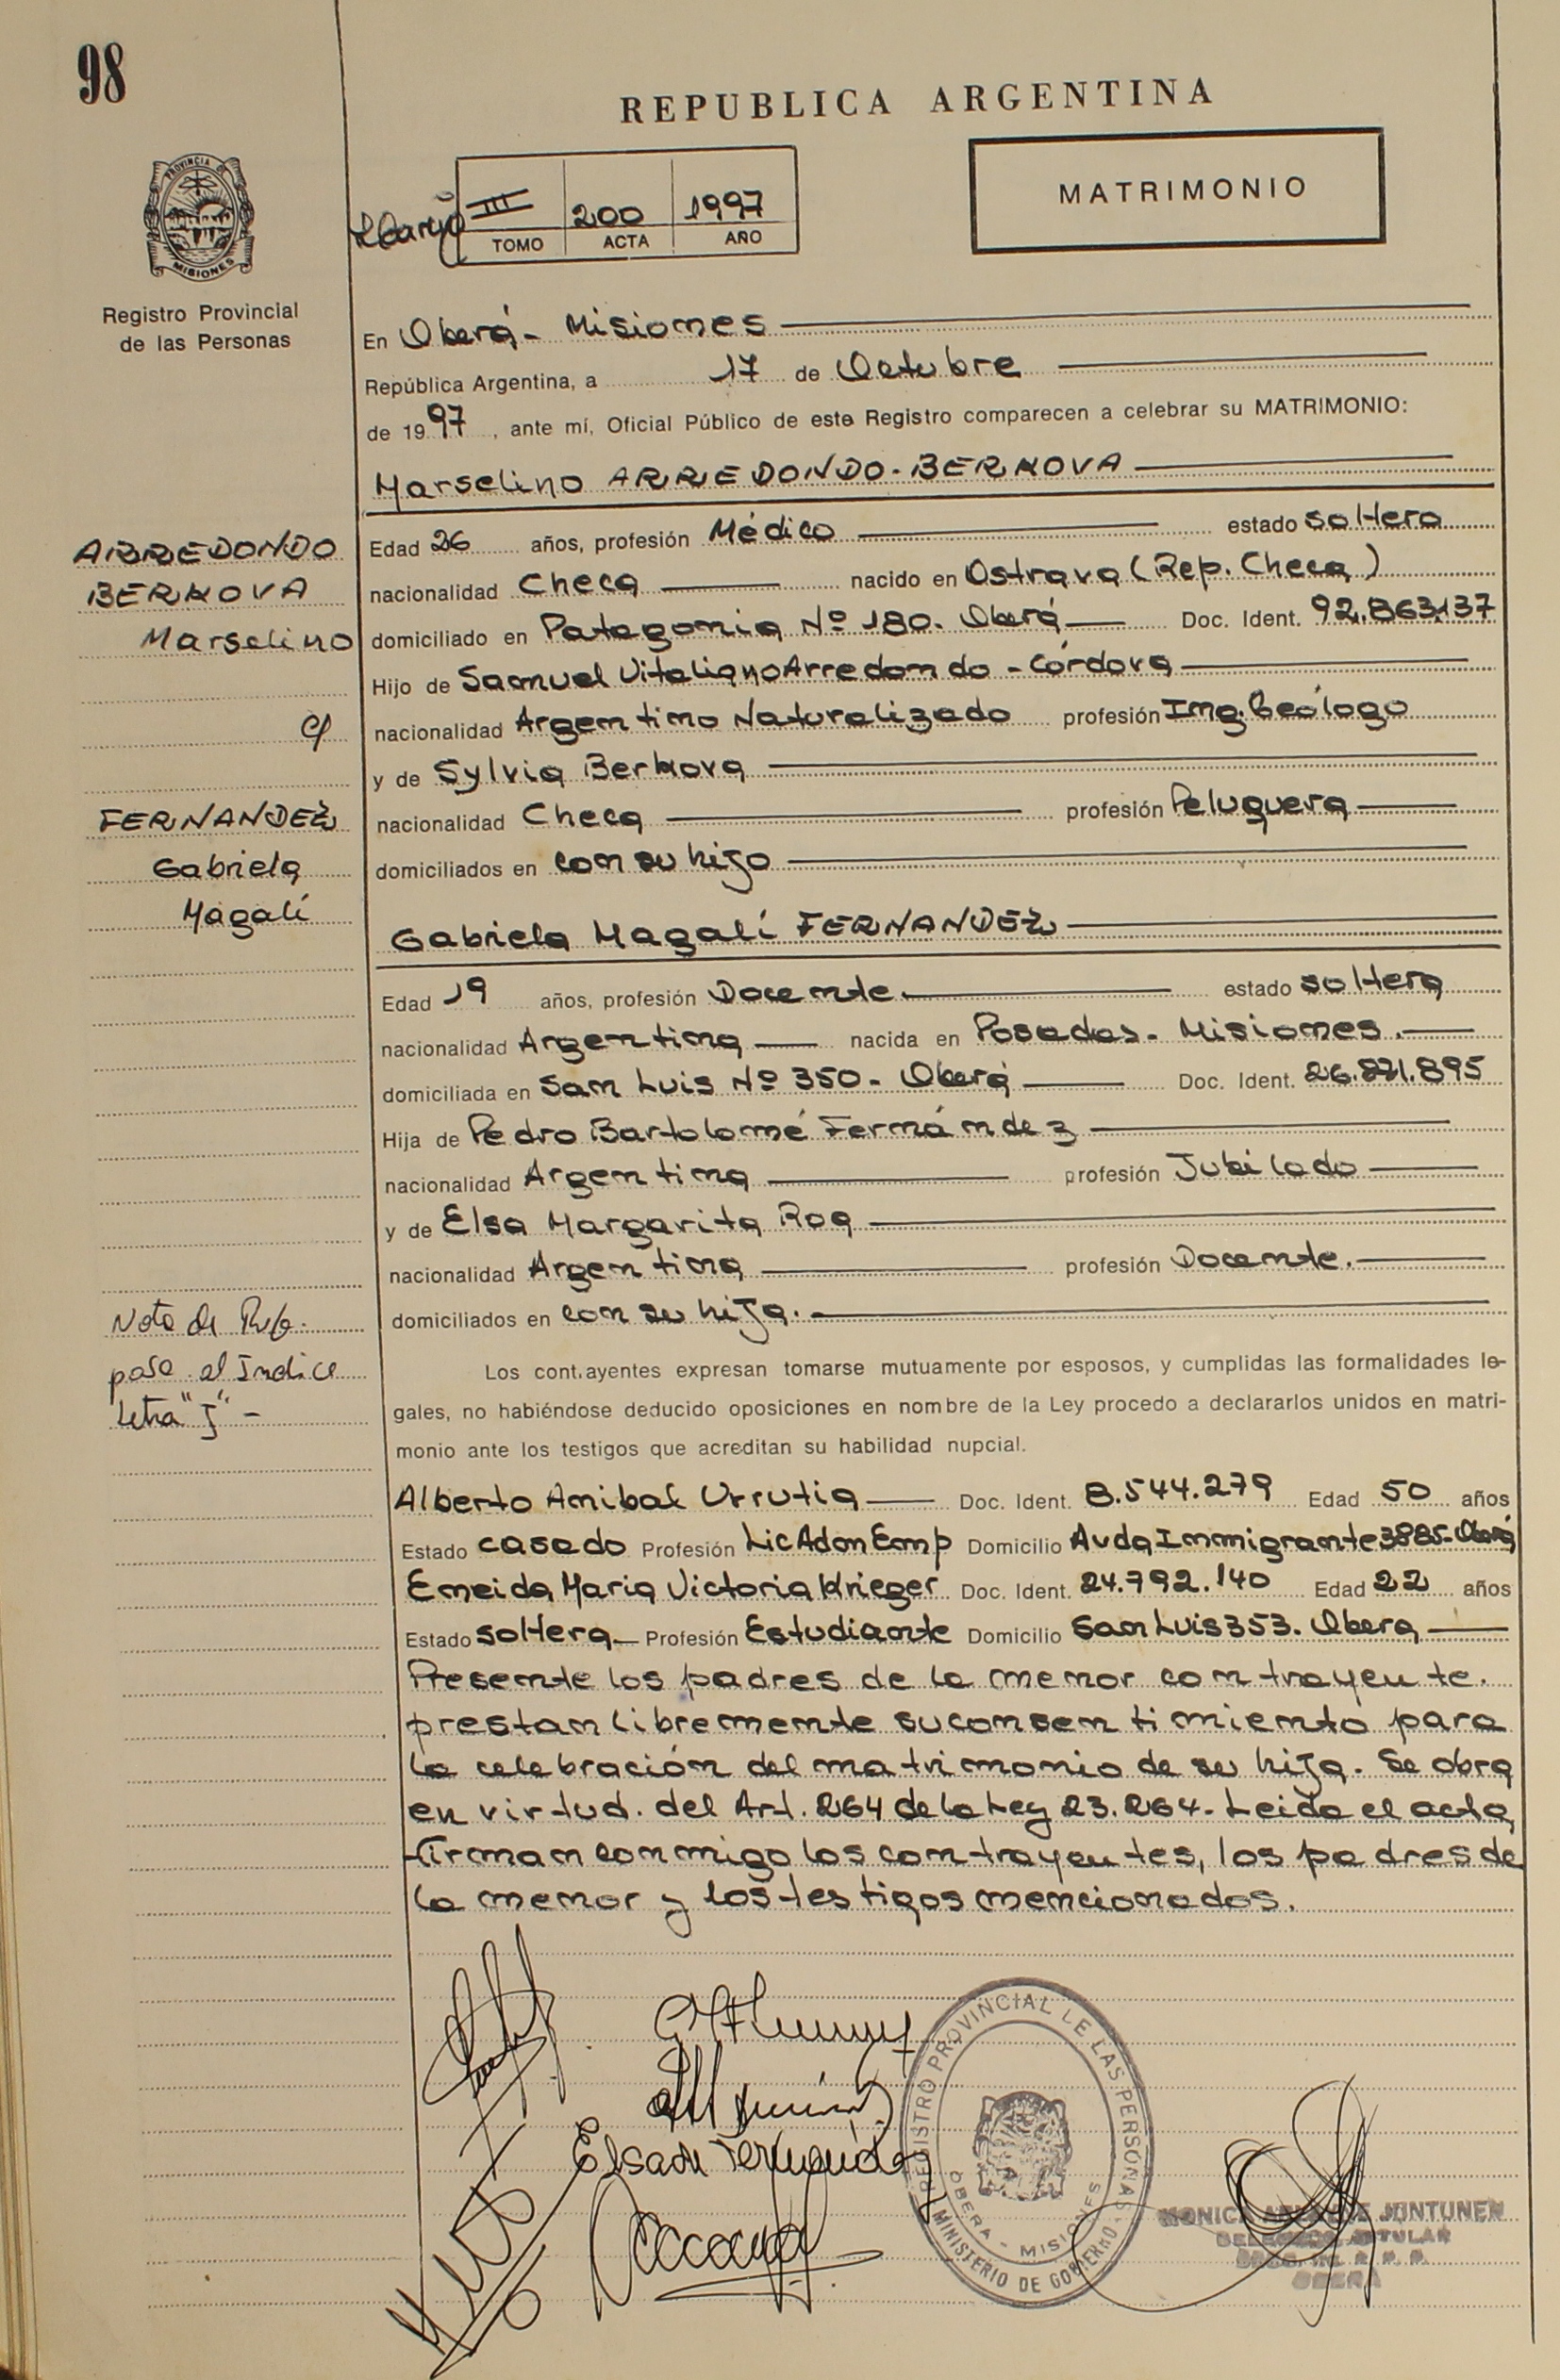 98
REPUBLICA ARGENTINA
PROVINCIA D
MISIONES
Registro Provincial
de las Personas
III 200 1997
TOMO ACTA AÑO
MATRIMONIO
En Oberá - Misiones
República Argentina, a 17 de Octubre
de 1997, ante mí, Oficial Público de este Registro comparecen a celebrar su MATRIMONIO:
Marselino ARREDONDO-BERKOVA
ARREDONDO
BERKOVA
Marselino
c/
FERNANDEZ
Gabriela
Magalí
Edad 26 años, profesión Médico estado soltero
nacionalidad Checa nacido en Ostrava (Rep. Checa)
domiciliado en Patagonia Nº 180. Oberá Doc. Ident. 92.863.137
Hijo de Samuel Vitaliano Arredondo - Córdova
nacionalidad Argentino Naturalizado profesión Ing. Geólogo
y de Sylvia Berkova
nacionalidad Checa profesión Peluquera
domiciliados en con su hijo
Gabriela Magalí FERNANDEZ
Edad 19 años, profesión Docente. estado soltera
nacionalidad Argentina nacida en Posadas - Misiones.
domiciliada en San Luis Nº 350 - Oberá Doc. Ident. 26.871.895
Hija de Pedro Bartolomé Fernández
nacionalidad Argentina profesión Jubilado
y de Elsa Margarita Roa
nacionalidad Argentina profesión Docente.
domiciliados en con su hija.
Nota de Ref.
pase al Indice
letra "J" -
Los cont.ayentes expresan tomarse mutuamente por esposos, y cumplidas las formalidades le-
gales, no habiéndose deducido oposiciones en nombre de la Ley procedo a declararlos unidos en matri-
monio ante los testigos que acreditan su habilidad nupcial.
Alberto Anibal Urrutia Doc. Ident. 8.544.279 Edad 50 años
Estado casado Profesión Lic Adm Emp Domicilio Avda Inmigrante 3885-Oberá
Emeida Maria Victoria Krieger Doc. Ident. 24.792.140 Edad 22 años
Estado soltera Profesión Estudiante Domicilio San Luis 353. Obera
Presente los padres de la menor contrayente.
prestan libremente su consentimiento para
la celebración del matrimonio de su hija. Se obra
en virtud. del Art. 264 de la Ley 23.264. Leida el acta,
firman conmigo los contrayentes, los padres de
la menor y los testigos mencionados.
Elsa de Fernández
REGISTRO PROVINCIAL DE LAS PERSONAS
OBERA - MISIONES
MINISTERIO DE GOBIERNO
MONICA JUNTUNEN
TITULAR
OBERA